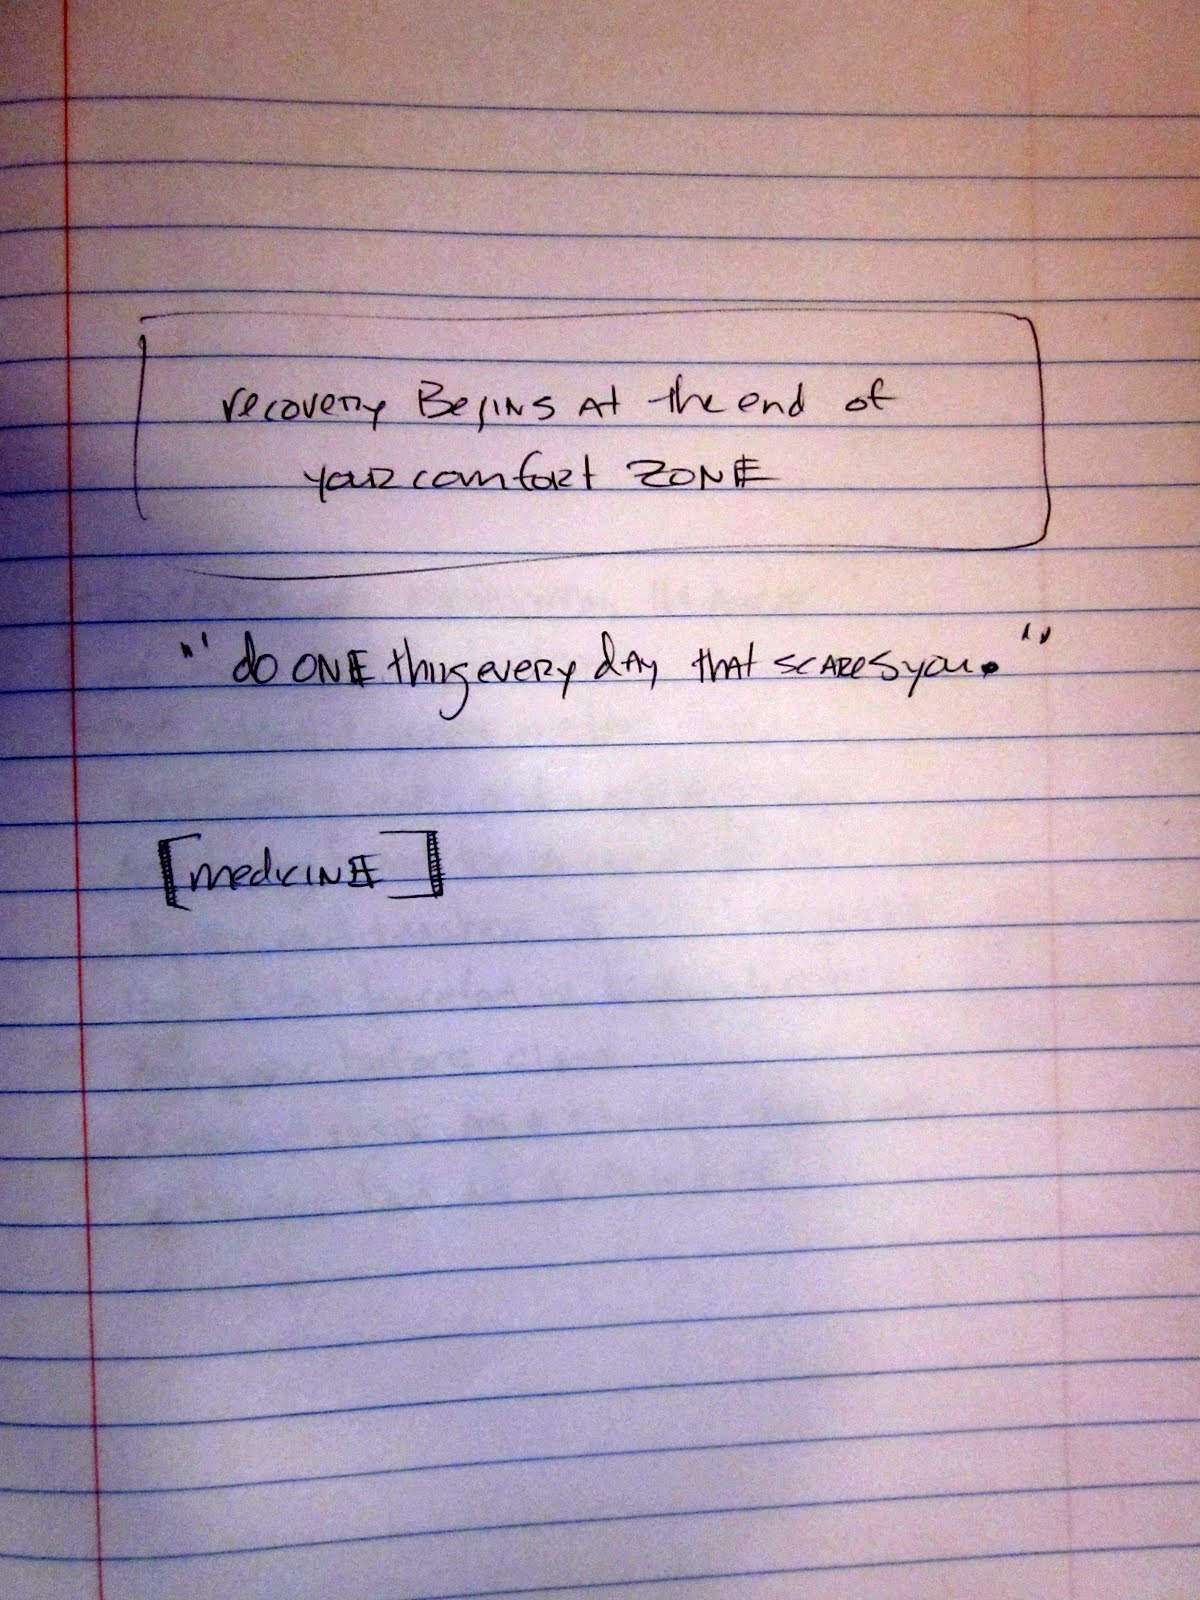 recovery Begins At the end of
your comfort ZONE
"do ONE thing every day that scares you."
[medicine]